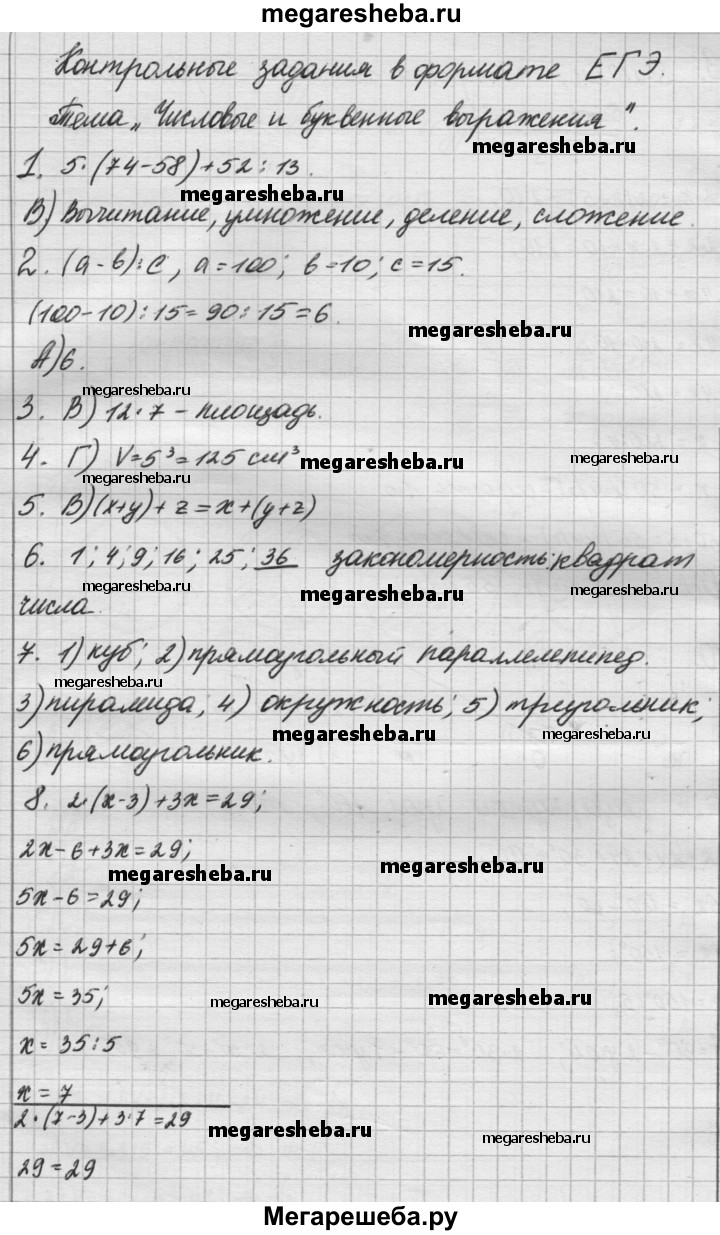 megaresheba.ru
Контрольные задания в формате ЕГЭ.
Тема „Числовые и буквенные выражения".
1. 5·(74-58)+52:13.
megaresheba.ru
В) Вычитание, умножение, деление, сложение.
2. (a-b):c, a=100; b=10; c=15.
(100-10):15=90:15=6.
megaresheba.ru
А)6.
megaresheba.ru
3. В) 12·7 - площадь.
4. Г) V=5³=125 см³
megaresheba.ru
megaresheba.ru
5. В)(x+y)+z=x+(y+z)
6. 1; 4; 9; 16; 25; 36 закономерность: квадрат
megaresheba.ru
megaresheba.ru
megaresheba.ru
числа.
7. 1) куб; 2) прямоугольный параллелепипед.
megaresheba.ru
3) пирамида; 4) окружность; 5) треугольник;
megaresheba.ru
megaresheba.ru
6) прямоугольник.
8. 2·(x-3)+3x=29;
2x-6+3x=29;
megaresheba.ru
megaresheba.ru
5x-6=29;
5x=29+6;
5x=35;
megaresheba.ru
megaresheba.ru
x=35:5
x=7
2·(7-3)+3·7=29
megaresheba.ru
megaresheba.ru
29=29
Мегарешеба.ру